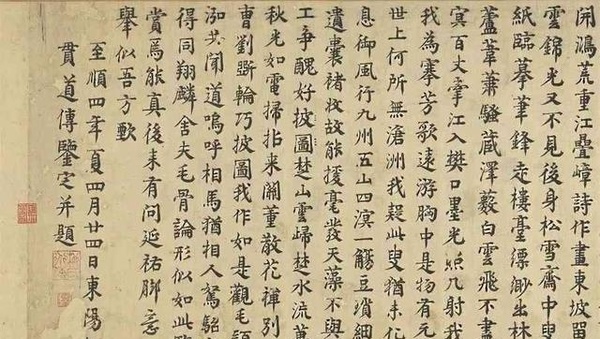 開鴻荒重江疊嶂詩作畫東坡留
雲錦光又不見後身松雪齋中叟
紙臨摹筆鋒走樓臺縹緲出林
蘆葦蕭騷藏澤藪白雲飛不盡
冥百丈牽江入樊口墨光照几射我
我為搴芳歌遠游胸中是物有元
世上何所無滄洲我疑此叟猶未化
息御風行九州五山四溟一觴豆瑣細
遺囊褚收故能援毫發天藻不與
工爭醜好披圖楚山雲歸楚水流萬
秋光如電掃拈来關董散花禪別
曹劉斵輪巧披圖我作如是觀毛
泓共聞道嗚呼相馬猶相人駑駘
得同翔麟舍夫毛骨論形似如此
賞焉能真後来有問延祐腳意
舉似吾方歅
至順四年夏四月廿四日東陽
貫道傳鑒定并題